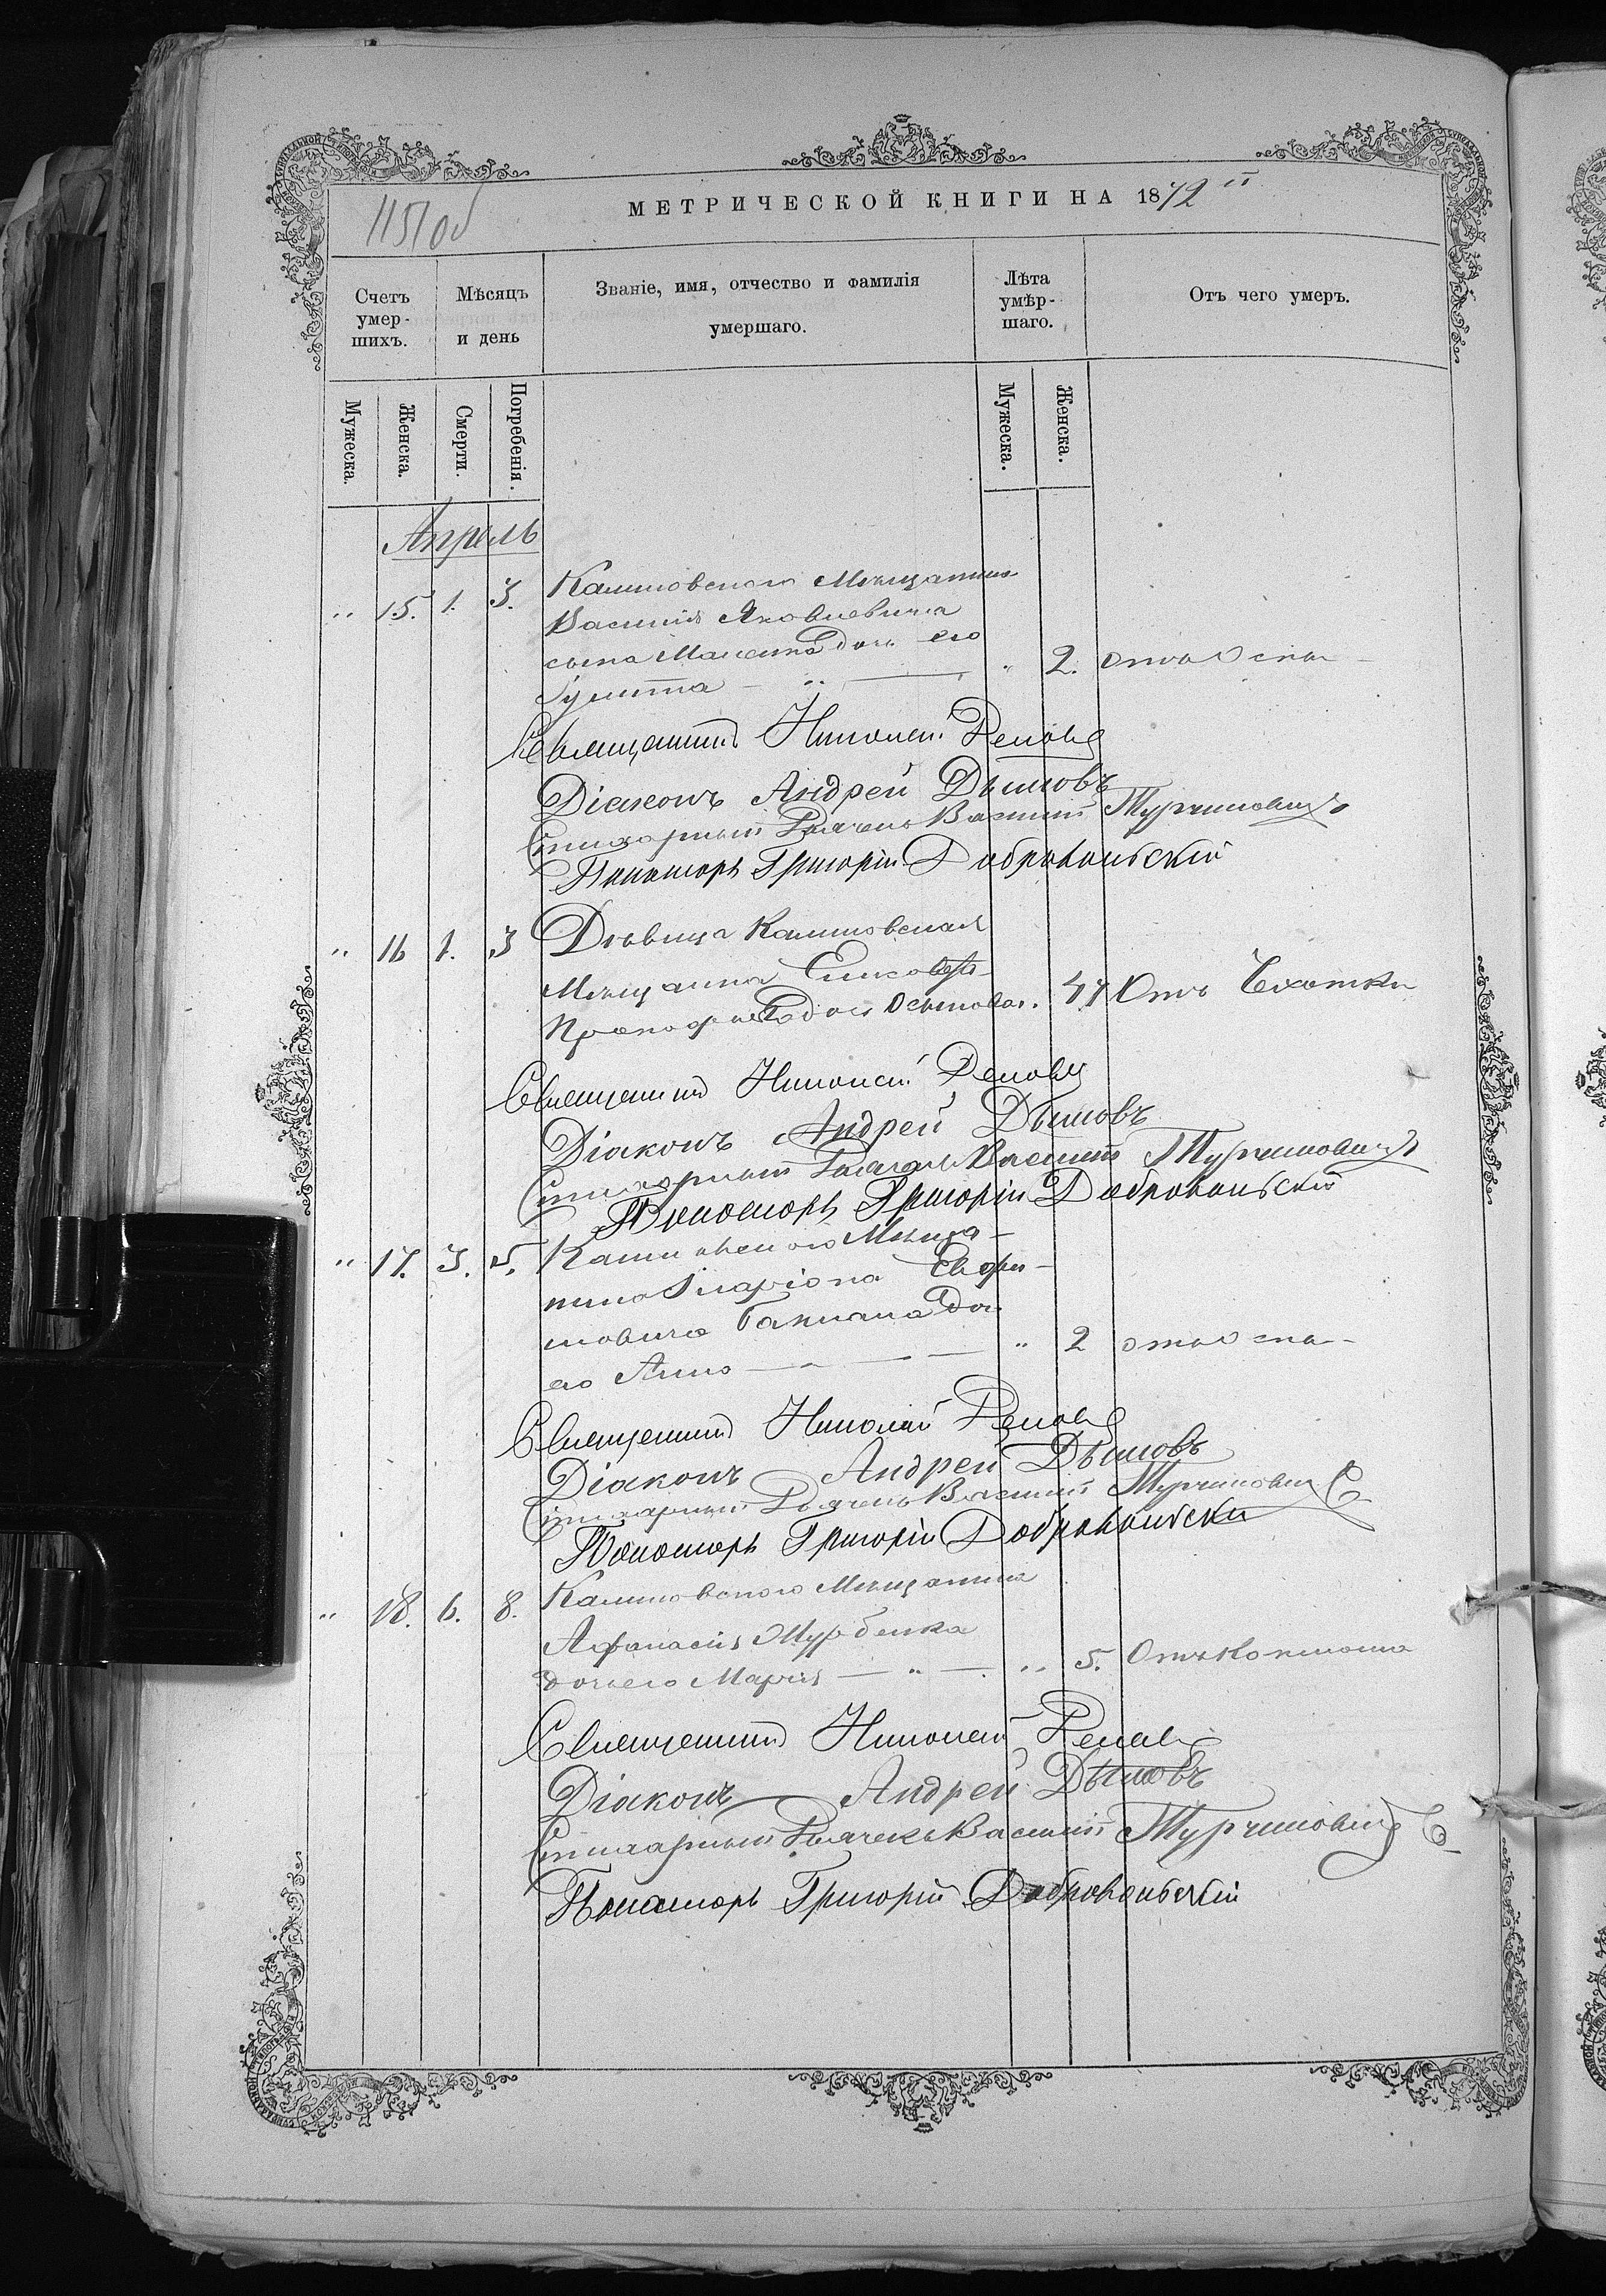 115об
МЕТРИЧЕСКОЙ КНИГИ НА 1872
Счетъ умер-шихъ.
Мѣсяцъ и день
Званіе, имя, отчество и фамилія умершаго.
Лѣта умер-шаго.
Отъ чего умеръ.
Мужеска.
Женска.
Смерти.
Погребенія.
Мужеска.
Женска.
Апрель
" 15. 1. 3. Калиновского Мещанина
Василія Яковлевича
сына дочь его
Іулитта — " — " 2. отъ Оспы —
Священник Николай
Діаконъ Андрей Дымовъ
Стихарный Дьячекъ Василий Турчиновичъ
Пономарь Григорій Добровольскій
" 16 1. 3 Дѣвица Калиновская
Мещанка Елисавета
44 Отъ Чахотки
Священник Николай
Діаконъ Андрей Дымовъ
Стихарный Дьячекъ Василий Турчиновичъ
Пономарь Григорій Добровольскій
" 17. 3. 5. Калиновского Меща-
нина Иларіона Евфи-
мовича дочь
его Анна — " 2 отъ Оспы —
Священник Николай
Діаконъ Андрей Дымовъ
Стихарный Дьячекъ Василий Турчинович
Пономарь Григорій Добровольски
" 18. 6. 8. Калиновского Мещанина
Афанасія
дочь его Марія — " — " 5. Отъ Коклюша
Священник Николай
Діаконъ Андрей Дымовъ
Стихарный Дьячекъ Василий Турчинович
Пономарь Григорій Добровольскій